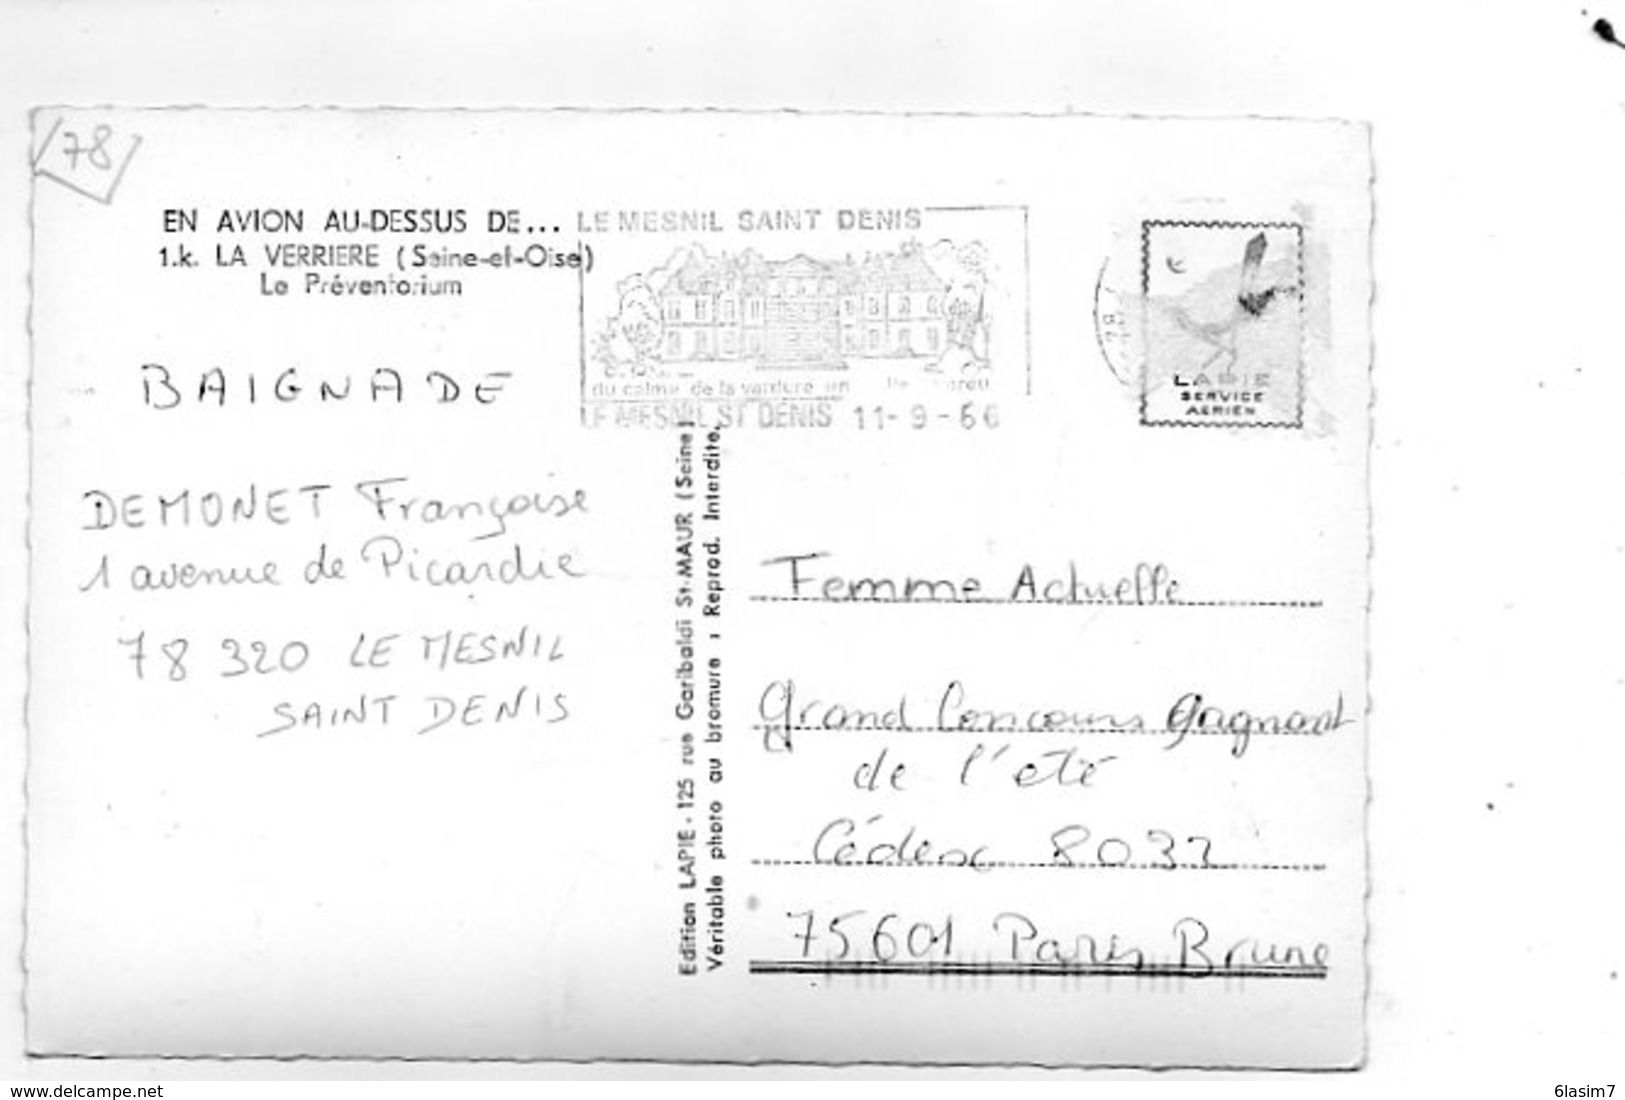 78
EN AVION AU-DESSUS DE...
1.k. LA VERRIERE (Seine-et-Oise)
Le Préventorium
LE MESNIL SAINT DENIS
du calme de la verdure un
LE MESNIL ST DENIS 11-9-66
78
LAPIE
SERVICE
AERIEN
BAIGNADE
DEMONET Françoise
1 avenue de Picardie
78 320 LE MESNIL
SAINT DENIS
Edition LAPIE - 125 rue Garibaldi St-MAUR (Seine)
Véritable photo au bromure : Reprod. Interdite.
Femme Actuelle
Grand Concours Gagnant
de l'eté
Cédex 8033
75601 Paris Brune
www.delcampe.net
6lasim7